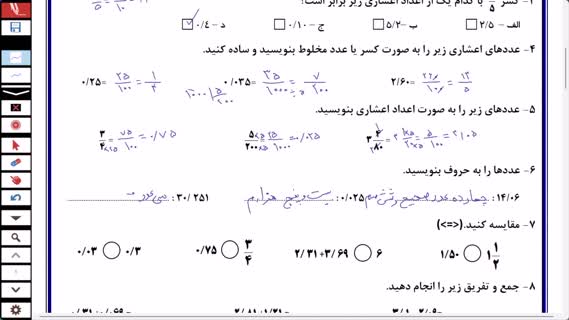 ۳- کسر ۲/۵ با کدام یک از اعداد اعشاری زیر برابر است؟
الف - ۲/۵ ب- ۵/۲ ج - ۰/۱۰ د - ۰/۴
۴- عددهای اعشاری زیر را به صورت کسر یا عدد مخلوط بنویسید و ساده کنید.
۲/۶۰= ۰/۰۳۵= ۳۵/۱۰۰۰ = ۷/۲۰۰ ۰/۲۵= ۲۵/۱۰۰ = ۱/۴
۵- عددهای زیر را به صورت اعداد اعشاری بنویسید.
۵/۲۰۰ = ۰/۰۲۵ ۳/۴ = ۷۵/۱۰۰ = ۰/۷۵
۶- عددها را به حروف بنویسید.
۱۴/۰۶: چهارده عدد صحیح و شش صدم ۰/۰۲۵: بیست و پنج هزارم ۳۰/۲۵۱: سی عدد
۷- مقایسه کنید.(<=>)
۱ ۱/۲ ○ ۱/۵۰ ۶ ○ ۲/۳۱+۳/۶۹ ۳/۴ ○ ۰/۷۵ ۰/۳ ○ ۰/۰۳
۸- جمع و تفریق زیر را انجام دهید.